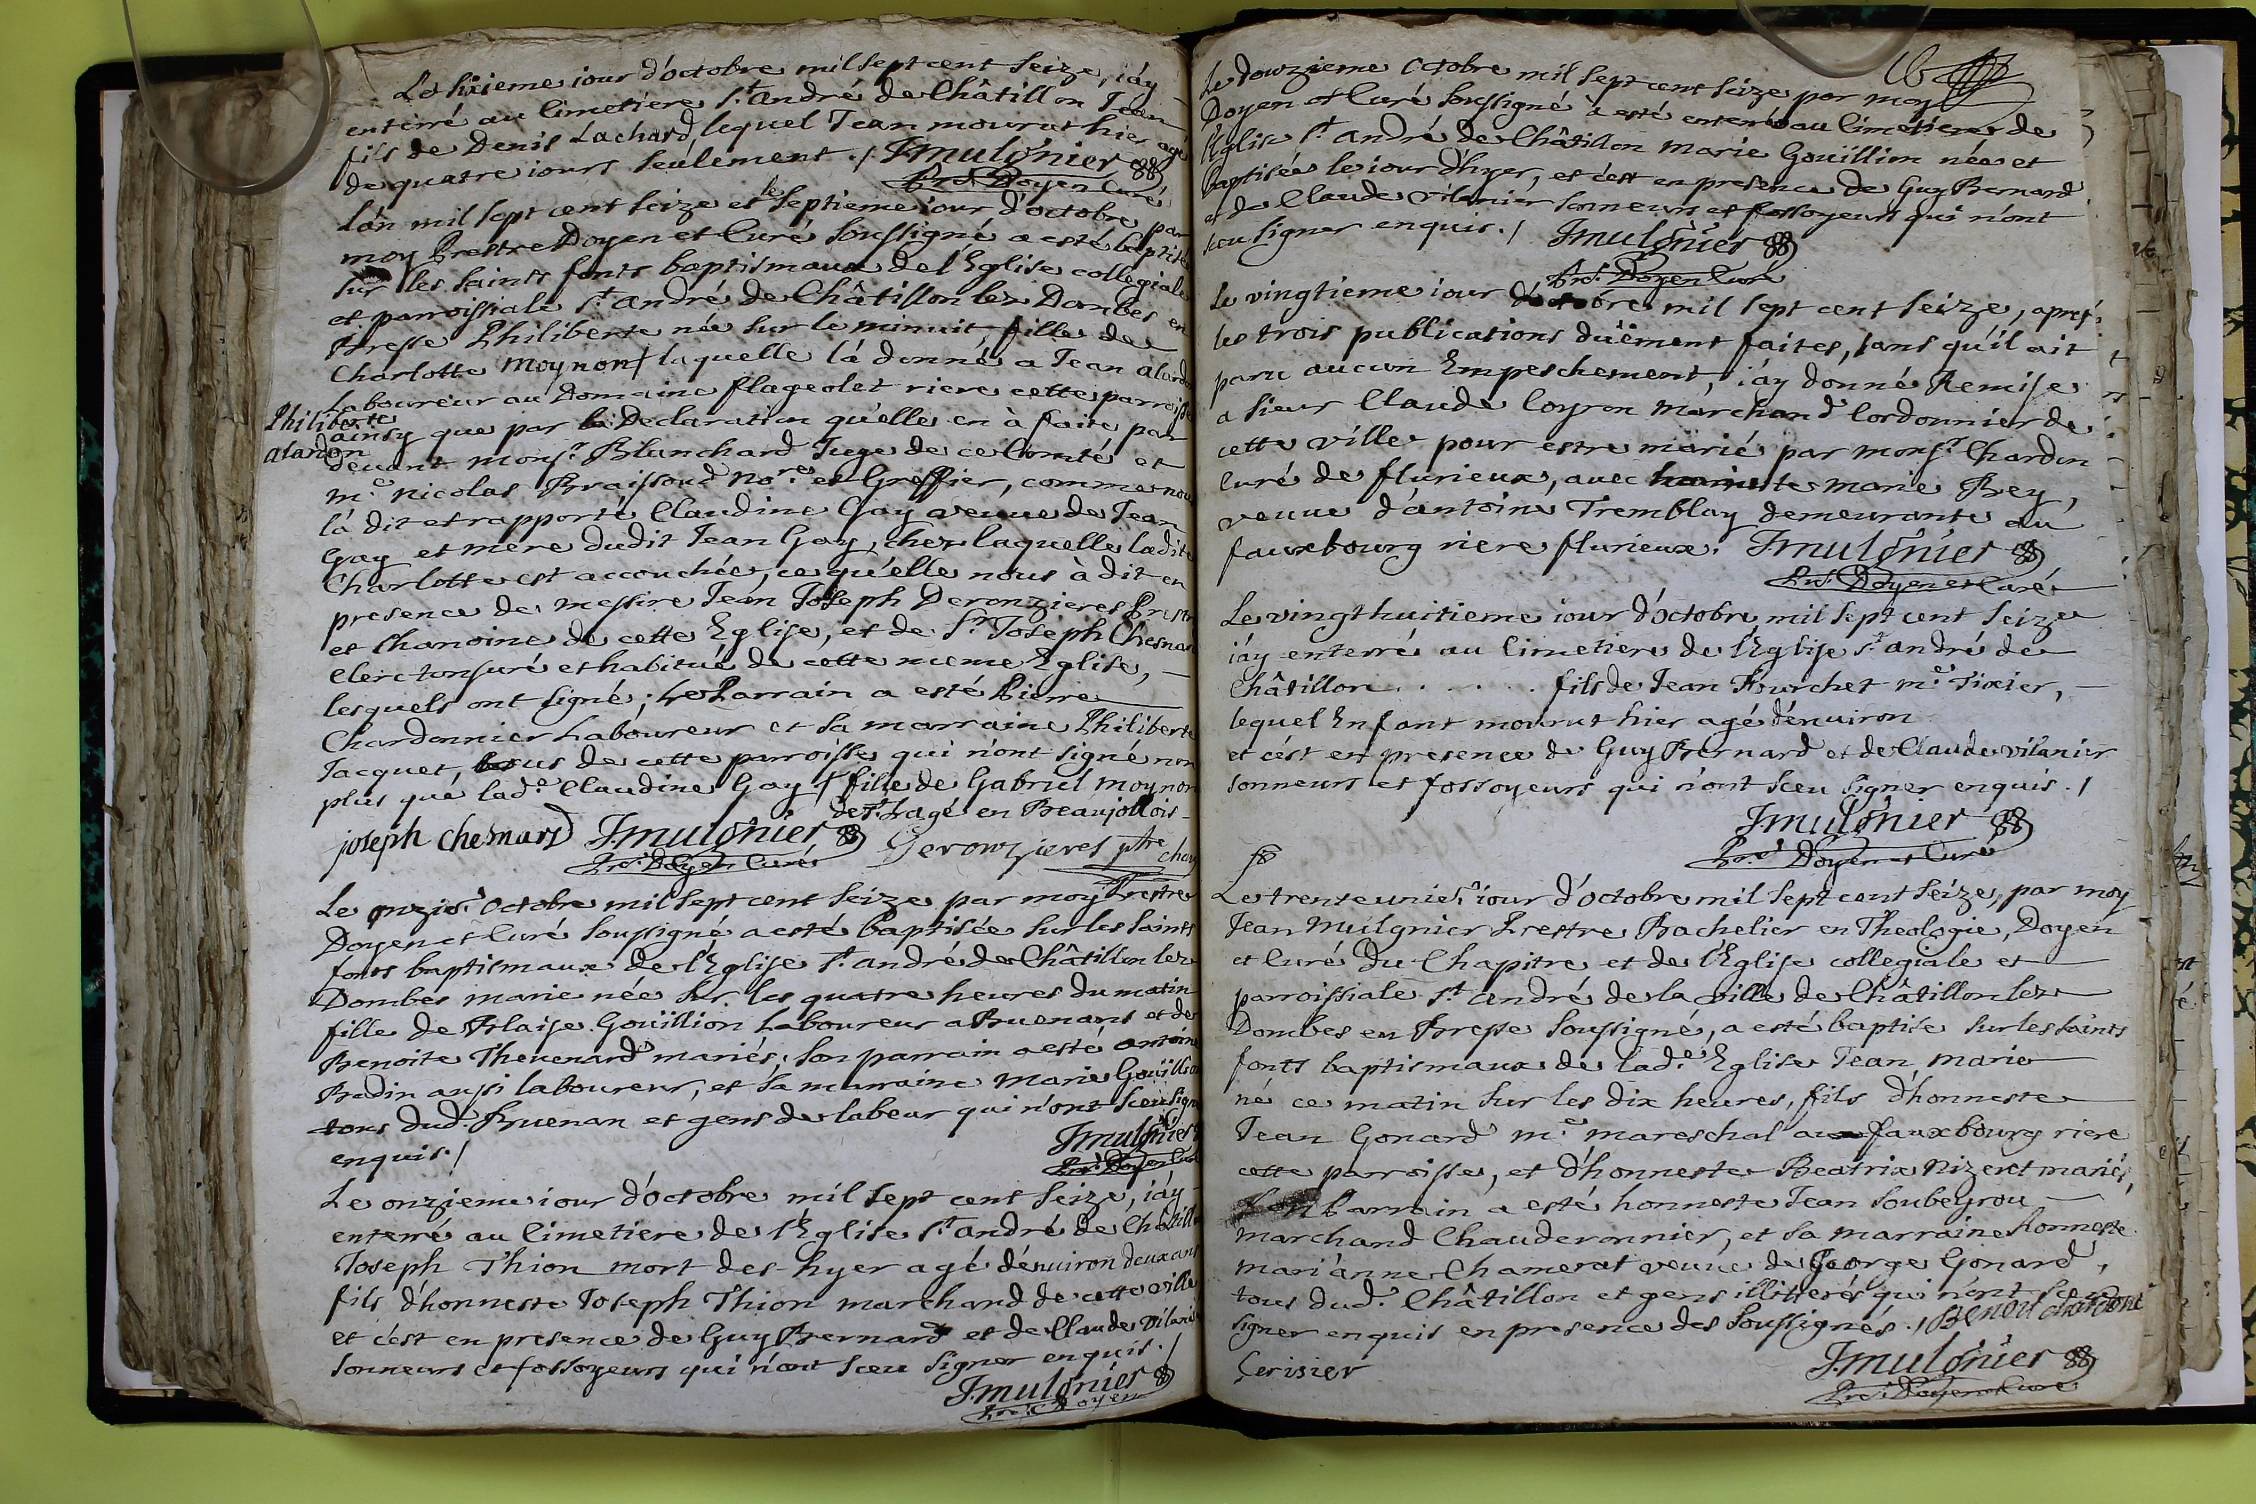 Le sixieme iour d'octobre mil sept cent seize, i'ay
enterré au Cimetiere St. andré de Châtillon Jean
fils de Denis Lachard lequel Jean mourut hier agé
de quatre iours seulement ./ J. mulsnier
Pre. Doyen Curé
L'an mil sept cent seize et le septieme iour d'octobre par
moy Prestre Doyen et Curé soussigné a esté baptisée
sur les saints fonts baptismaux de l'Eglise collegiale
et parroissiale St. andré de Châtillon lez Dombes en
Bresse Philiberte née sur le minuit, fille de
Charlotte moynon laquelle l'a donné a Jean alardon
Laboureur au Domaine flageolet riere cette parroisse
Philiberte
alardon
ainsy que par la Declaration qu'elle en à faite par
devant monsr. Blanchard Juge de ce Comté et
me. nicolas Braissoud nore. et Greffier, comme nous
l'a dit et rapporté Claudine Gay veuve de Jean
Gay et mere dudit Jean Gay, chez laquelle ladite
Charlotte est accouchée, ce qu'elle nous à dit en
presence de messire Jean Joseph Deronzieres Prestre
et Chanoine de cette Eglise, et de Sr. Joseph Chesnard
Clerc tonsuré et habitué de cette meme Eglise,
lesquels ont signé ; Le Parrain a esté Pierre
Chardonnier Laboureur et sa marraine Philiberte
Jacquet, tous de cette parroisse qui n'ont signé non
plus que lade. Claudine Gay / fille de Gabriel moynon
de St. Lagé en Beaujollois
joseph chesnard J. mulsnier Deronzieres ptre chan
Pre. Doyen Curé
Le onzie. octobre mil sept cent seize par moy Prestre
Doyen et Curé soussigné a esté baptisée sur les saints
fonts baptismaux de l'Eglise St. andré de Châtillon lez
Dombes marie née sur les quatre heures du matin
fille de Blaise Goüillion Laboureur a Bruenans et de
Benoite Thevenard mariés ; son parrain a esté antoine
Bradin aussi laboureur, et sa marraine marie Goüillion
tous dud. Bruenan et gens de labeur qui n'ont sceu signer
enquis ./ J. mulsnier
Pre. Doyen Curé
Le onzieme iour d'octobre mil sept cent seize, i'ay
enterré au Cimetiere de l'Eglise St. andré de Châtillon
Joseph Thion mort des hyer agé d'enuiron deux ans
fils d'honneste Joseph Thion marchand de cette ville
et c'est en presence de Guy Bernard et de Claude vilanier
sonneurs et fossoyeurs qui n'ont sceu signer enquis ./
J. mulsnier
Pre. Doyen
Le douzieme octobre mil sept cent seize par moy
Doyen et Curé soussigné à esté enterrée au Cimetiere de
l'Eglise St. andré de Châtillon marie Goüillion née et
baptisée le iour d'hyer, et c'est en presence de Guy Bernard
et de Claude vilanier sonneurs et fossoyeurs qui n'ont
sceu signer enquis ./ J. mulsnier
Pre. Doyen Curé
Le vingtieme iour d'octobre mil sept cent seize, apres
les trois publications düement faites, sans qu'il ait
paru aucun Empeschement, i'ay donné Remise
a sieur Claude Coyron marchand Cordonnier de
cette ville pour estre marié par monsr. Chardon
Curé de flurieux, avec marie Brey,
veuue d'antoine Tremblay demeurante au
fauxbourg riere flurieux. J. mulsnier
Pre. Doyen et Curé
Le vingt huitieme iour d'octobre mil sept cent seize
i'ay enterré au Cimetiere de l'Eglise St. andré de
Châtillon . . . . . . fils de Jean Fourchet me. Tixier,
lequel Enfant mourut hier agé d'enuiron
et c'est en presence de Guy Bernard et de Claude vilanier
sonneurs et fossoyeurs qui n'ont sceu signer enquis ./
J. mulsnier
Pre. Doyen et Curé
Le trente unie. iour d'octobre mil sept cent seize, par moy
Jean Mulsnier Prestre Bachelier en Theologie, Doyen
et Curé du Chapitre et de l'Eglise collegiale et
parroissiale St. andré de la ville de Châtillon lez
Dombes en Bresse soussigné, a esté baptisé sur les saints
fonts baptismaux de lade. Eglise Jean marie
né ce matin sur les dix heures, fils d'honneste
Jean Gonard me. mareschal au fauxbourg riere
cette parroisse, et d'honneste Beatrix Nizeret mariés,
son Parrain a esté honneste Jean Soubeyrou
marchand Chauderonnier, et sa marraine honneste
mari'anne Chamerat veuue de George Gonard,
tous dud. Châtillon et gens illiterés qui n'ont sceu
signer enquis en presence des soussignés ./ Benoit
Cerisier J. mulsnier
Pre. Doyen et Curé